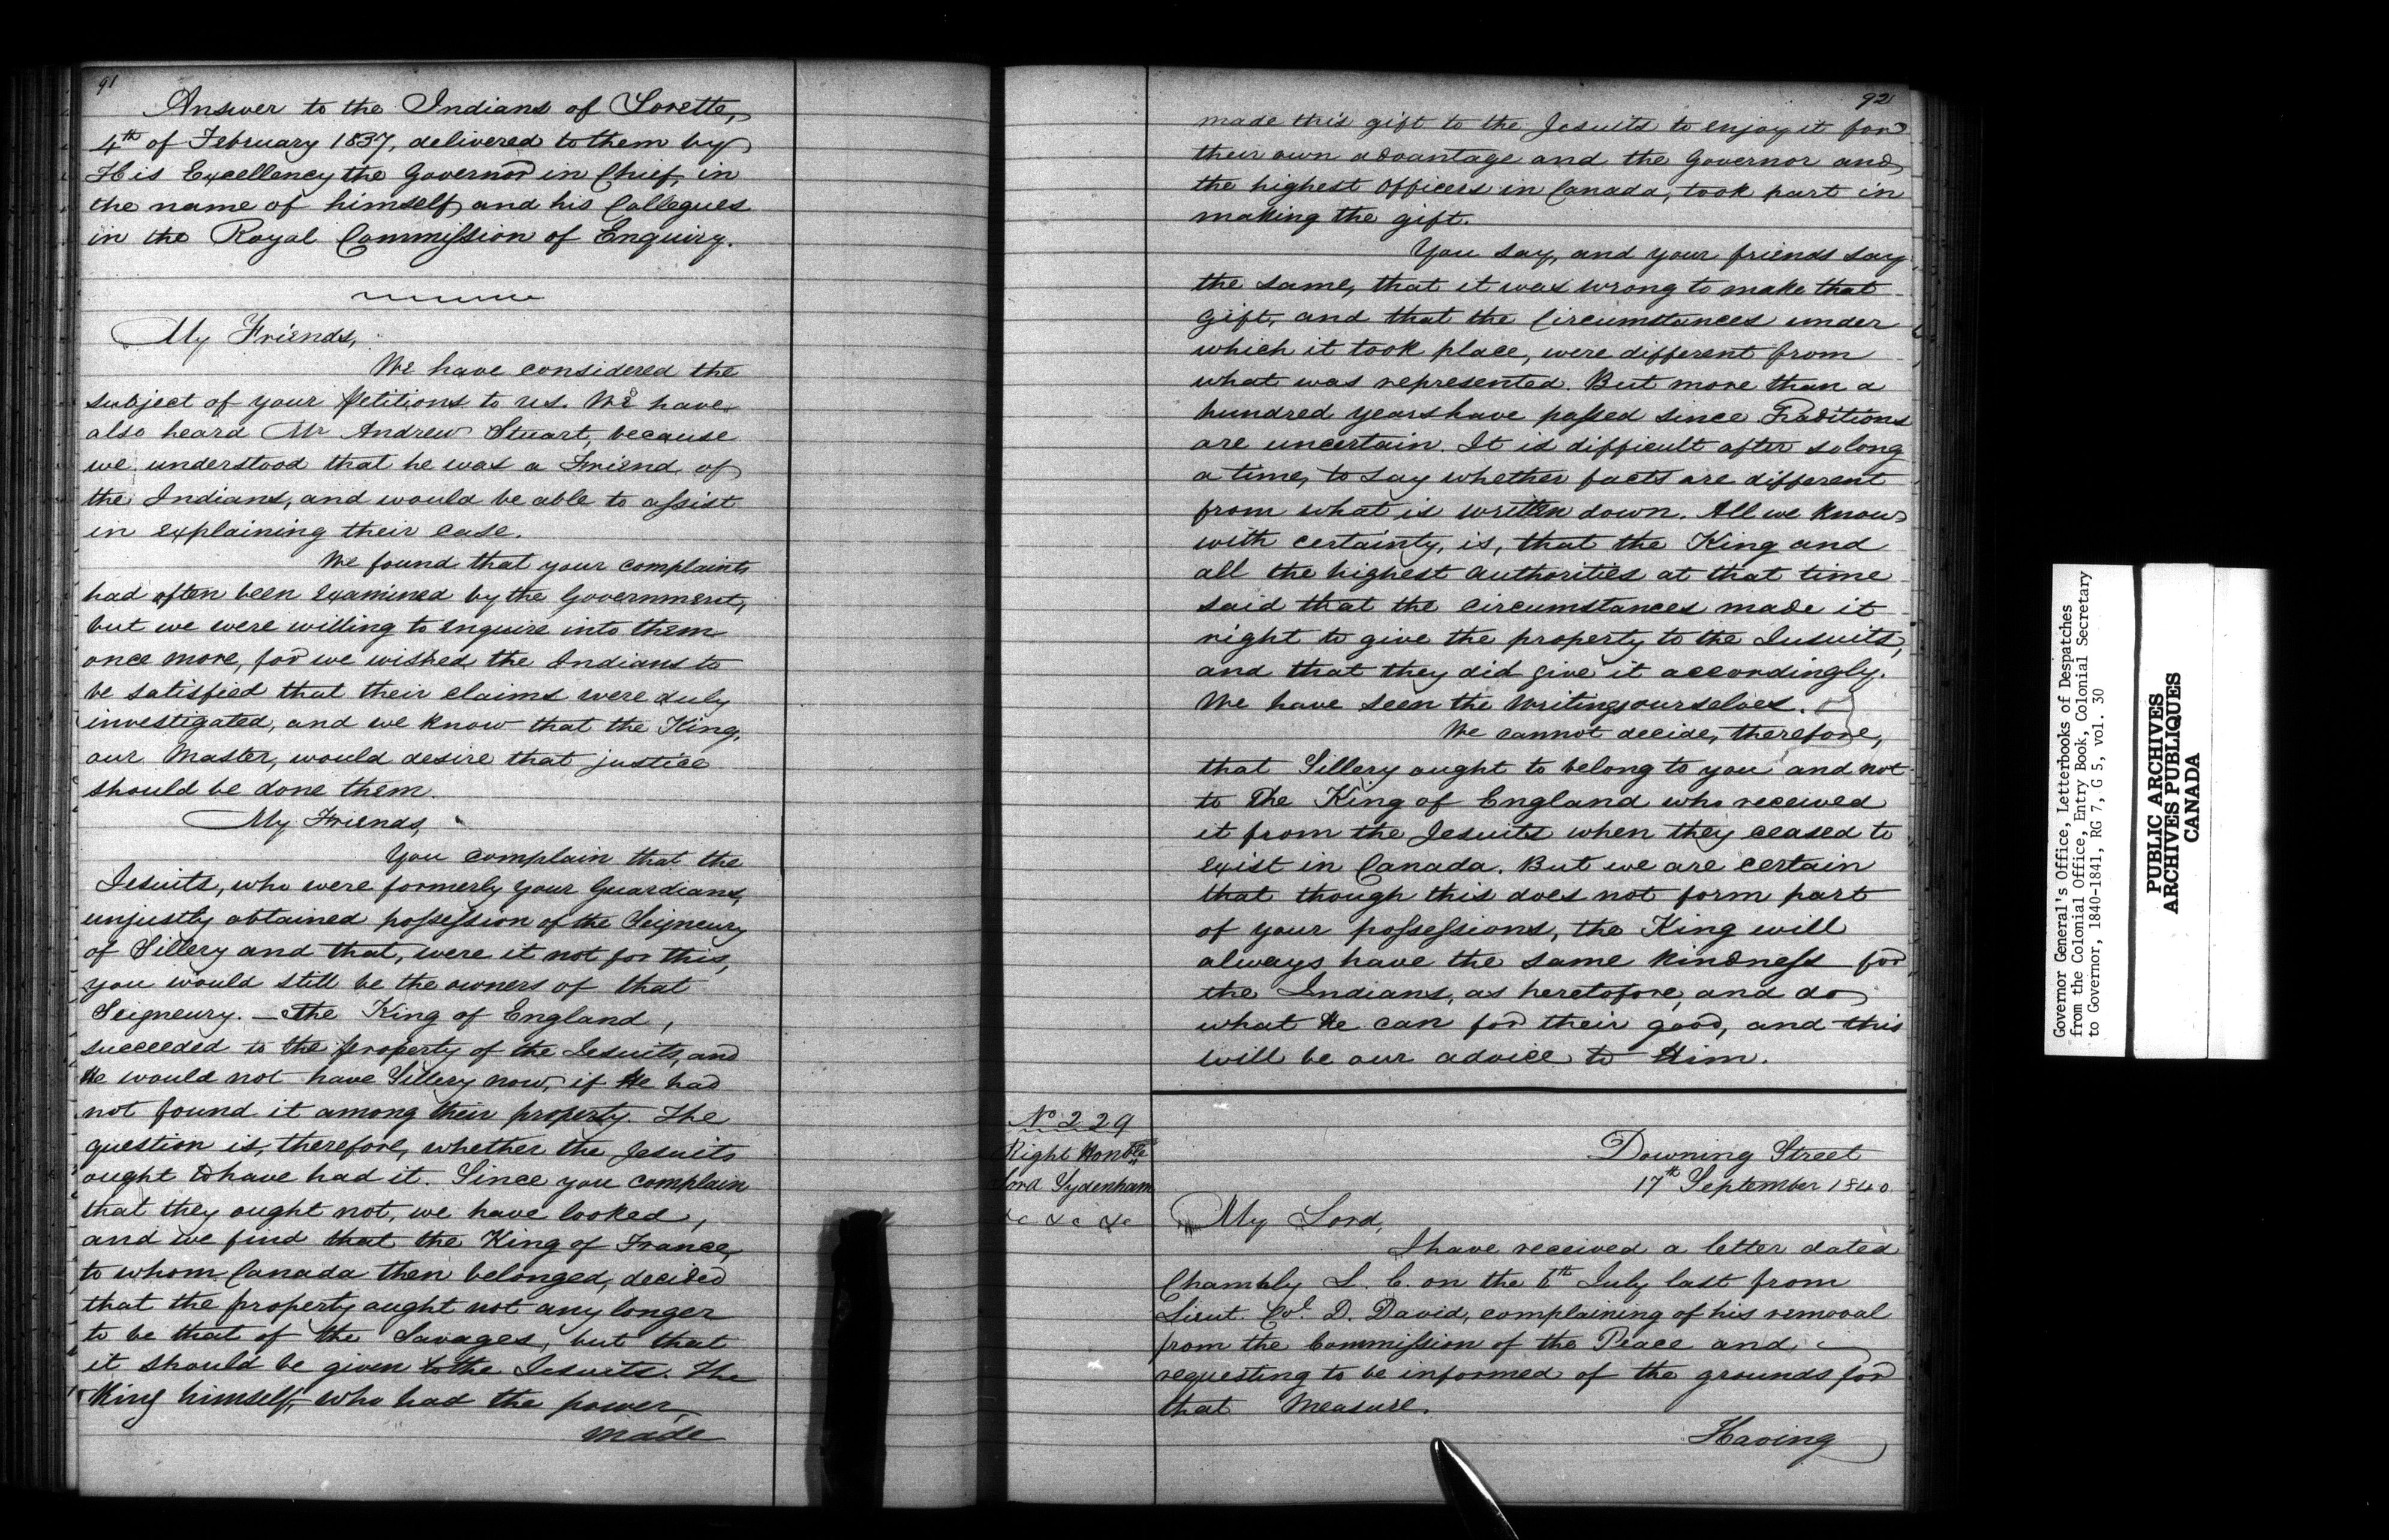 91
Answer to the Indians of Lorette,
4th of February 1837, delivered to them by
His Excellency the Governor in Chief, in
the name of himself and his Collegues
in the Royal Commission of Enquiry.
My Friends,
We have considered the
subject of your Petitions to us. We have
also heard Mr Andrew Stuart, because
we understood that he was a Friend of
the Indians, and would be able to assist
in explaining their case.
We found that your complaints
had often been examined by the Government,
but we were willing to enquire into them
once more, for we wished the Indians to
be satisfied that their claims were duly
investigated, and we know that the King,
our Master, would desire that justice
should be done them.
My Friends,
You complain that the
Jesuits, who were formerly your Guardians,
unjustly obtained possession of the Seigneury
of Sillery and that, were it not for this,
you would still be the owners of that
Seigneury. — The King of England,
succeeded to the property of the Jesuits, and
He would not have Sillery now, if He had
not found it among their property. The
question is, therefore, whether the Jesuits
ought to have had it. Since you complain
that they ought not, we have looked,
and we find that the King of France,
to whom Canada then belonged, decided
that the property ought not any longer
to be that of the Savages, but that
it should be given to the Jesuits. The
King himself, who had the power,
made
92
made this gift to the Jesuits to enjoy it for
their own advantage and the Governor and
the highest Officers in Canada, took part in
making the gift.
You say, and your friends say
the same, that it was wrong to make that
gift, and that the Circumstances under
which it took place, were different from
what was represented. But more than a
hundred years have passed since Traditions
are uncertain. It is difficult after so long
a time, to say whether facts are different
from what is written down. All we know
with certainty, is, that the King and
all the highest authorities at that time
said that the circumstances made it
right to give the property to the Jusuits,
and that they did give it accordingly.
We have seen the Writings ourselves.
We cannot decide, therefore,
that Sillery ought to belong to you and not
to the King of England who received
it from the Jesuits when they ceased to
exist in Canada. But we are certain
that though this does not form part
of your possessions, the King will
always have the same kindness for
the Indians, as heretofore, and do
what He can for their good, and this
will be our advice to Him.
No 229
Right Honble
Lord Sydenham
&c &c &c
Downing Street
17th September 1840
My Lord,
I have received a letter dated
Chambly L. C. on the 6th July last from
Lieut. Col. D. David, complaining of his removal
from the Commission of the Peace and
requesting to be informed of the grounds for
that Measure.
Having
Governor General's Office, Letterbooks of Despatches
from the Colonial Office, Entry Book, Colonial Secretary
to Governor, 1840-1841, RG 7, G 5, vol. 30
PUBLIC ARCHIVES
ARCHIVES PUBLIQUES
CANADA